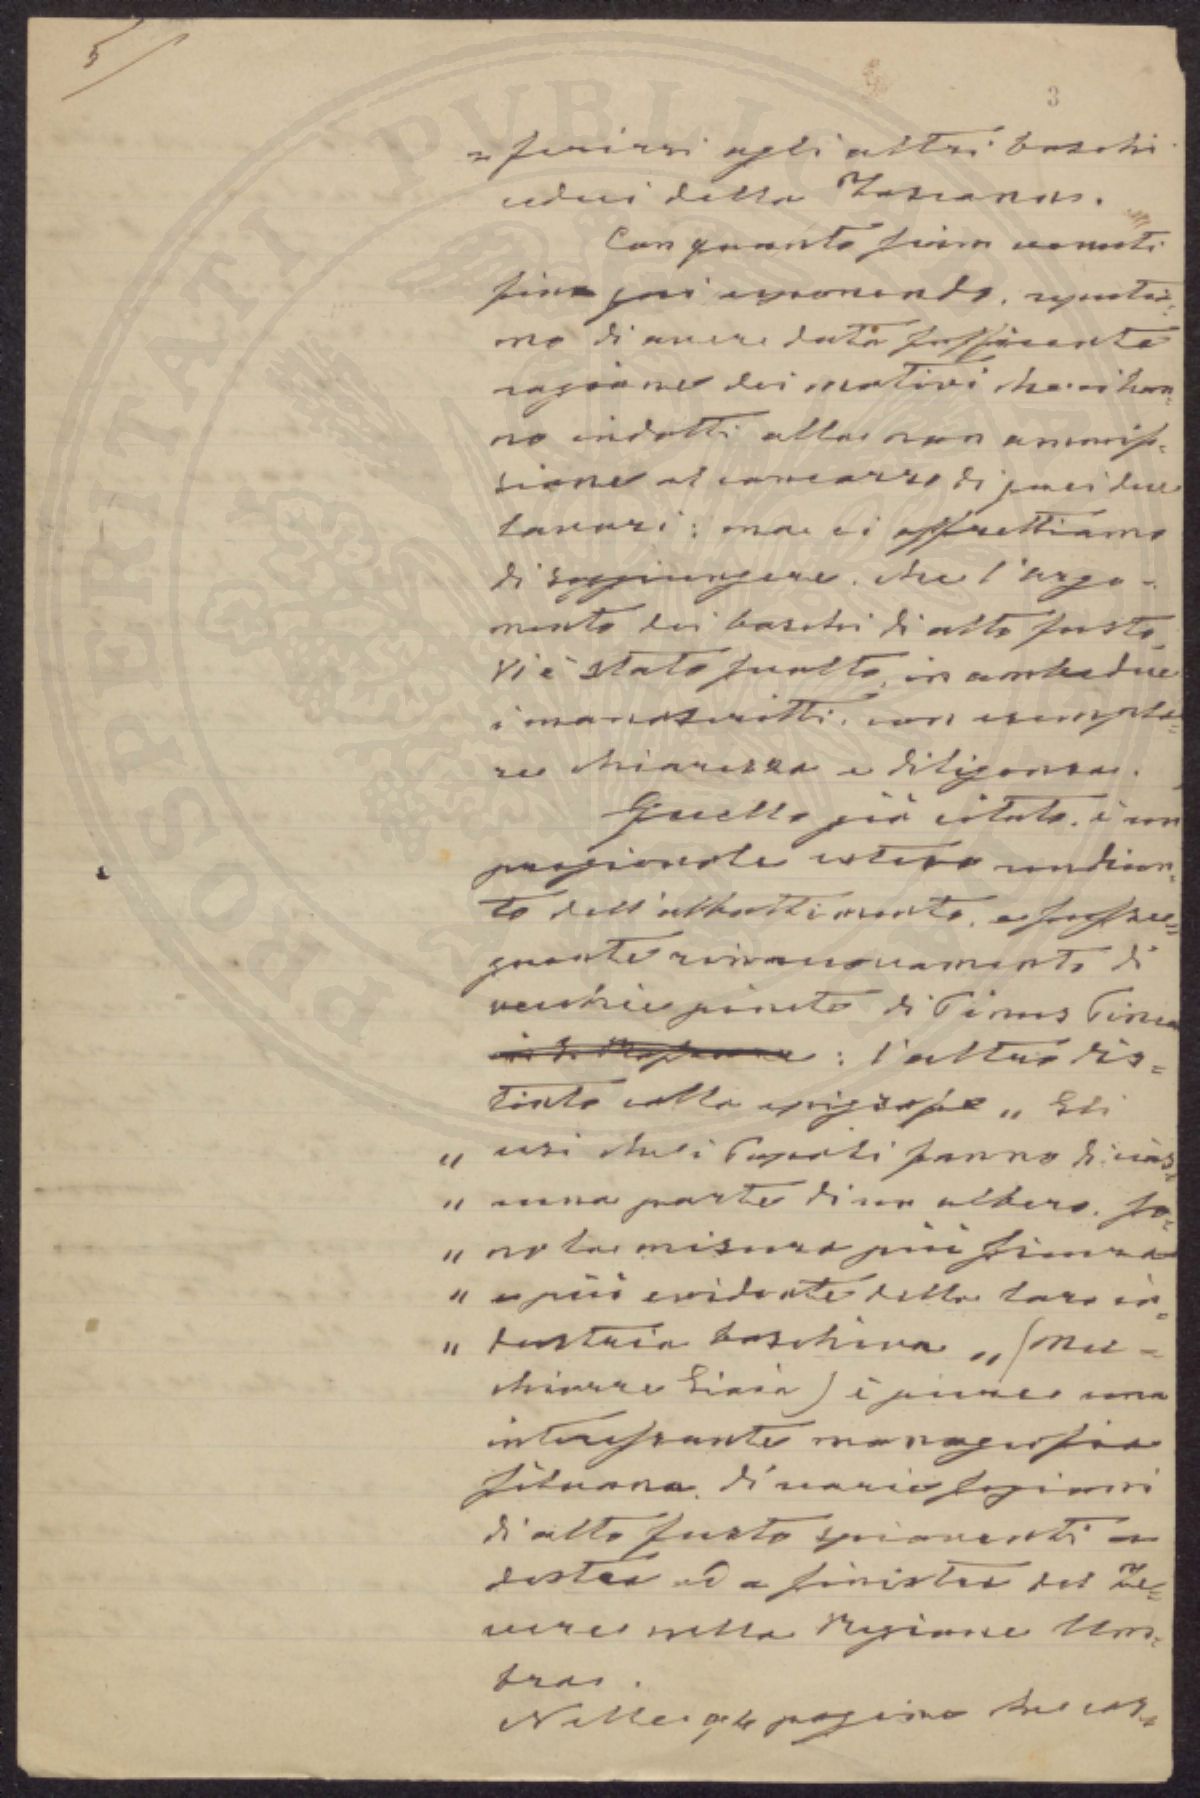 5/
3
= ferirsi agli altri boschi
cedui della Toscana.
Con quanto siam venuti
fin qui esponendo, reputia=
mo di avere data sufficiente
ragione dei motivi che ci han=
no indotti alla non ammis=
sione al concorso di quei due
lavori: ma ci affrettiamo
di soggiungere, che l'argo-
mento dei boschi di alto fusto,
vi è stato svolto, in ambedue
i manoscritti, con esempla=
re chiarezza e diligenza.
Quello già citato, è un
ragionato esteso rendicon=
to dell'abbattimento, e susse=
guente rinnuovamento di
vecchie pinete di Pinus Pinea
: l'altro dis=
tinto colla epigrafe „ Gli
„ usi che i Popoli fanno di cias=
„ cuna parte di un albero, so=
„ no la misura più sicura
„ e più evidente della loro in=
„ dustria boschiva „ (Mel=
chiorre Gioia) è pure una
interessante monografia
silvana, di varie fogioni
di alto fusto spioventi a
destra ed a sinistra del Te=
vere nella Regione Um=
bra.
Nelle pagine che cos=
PROSPERITATI PUBLICAE